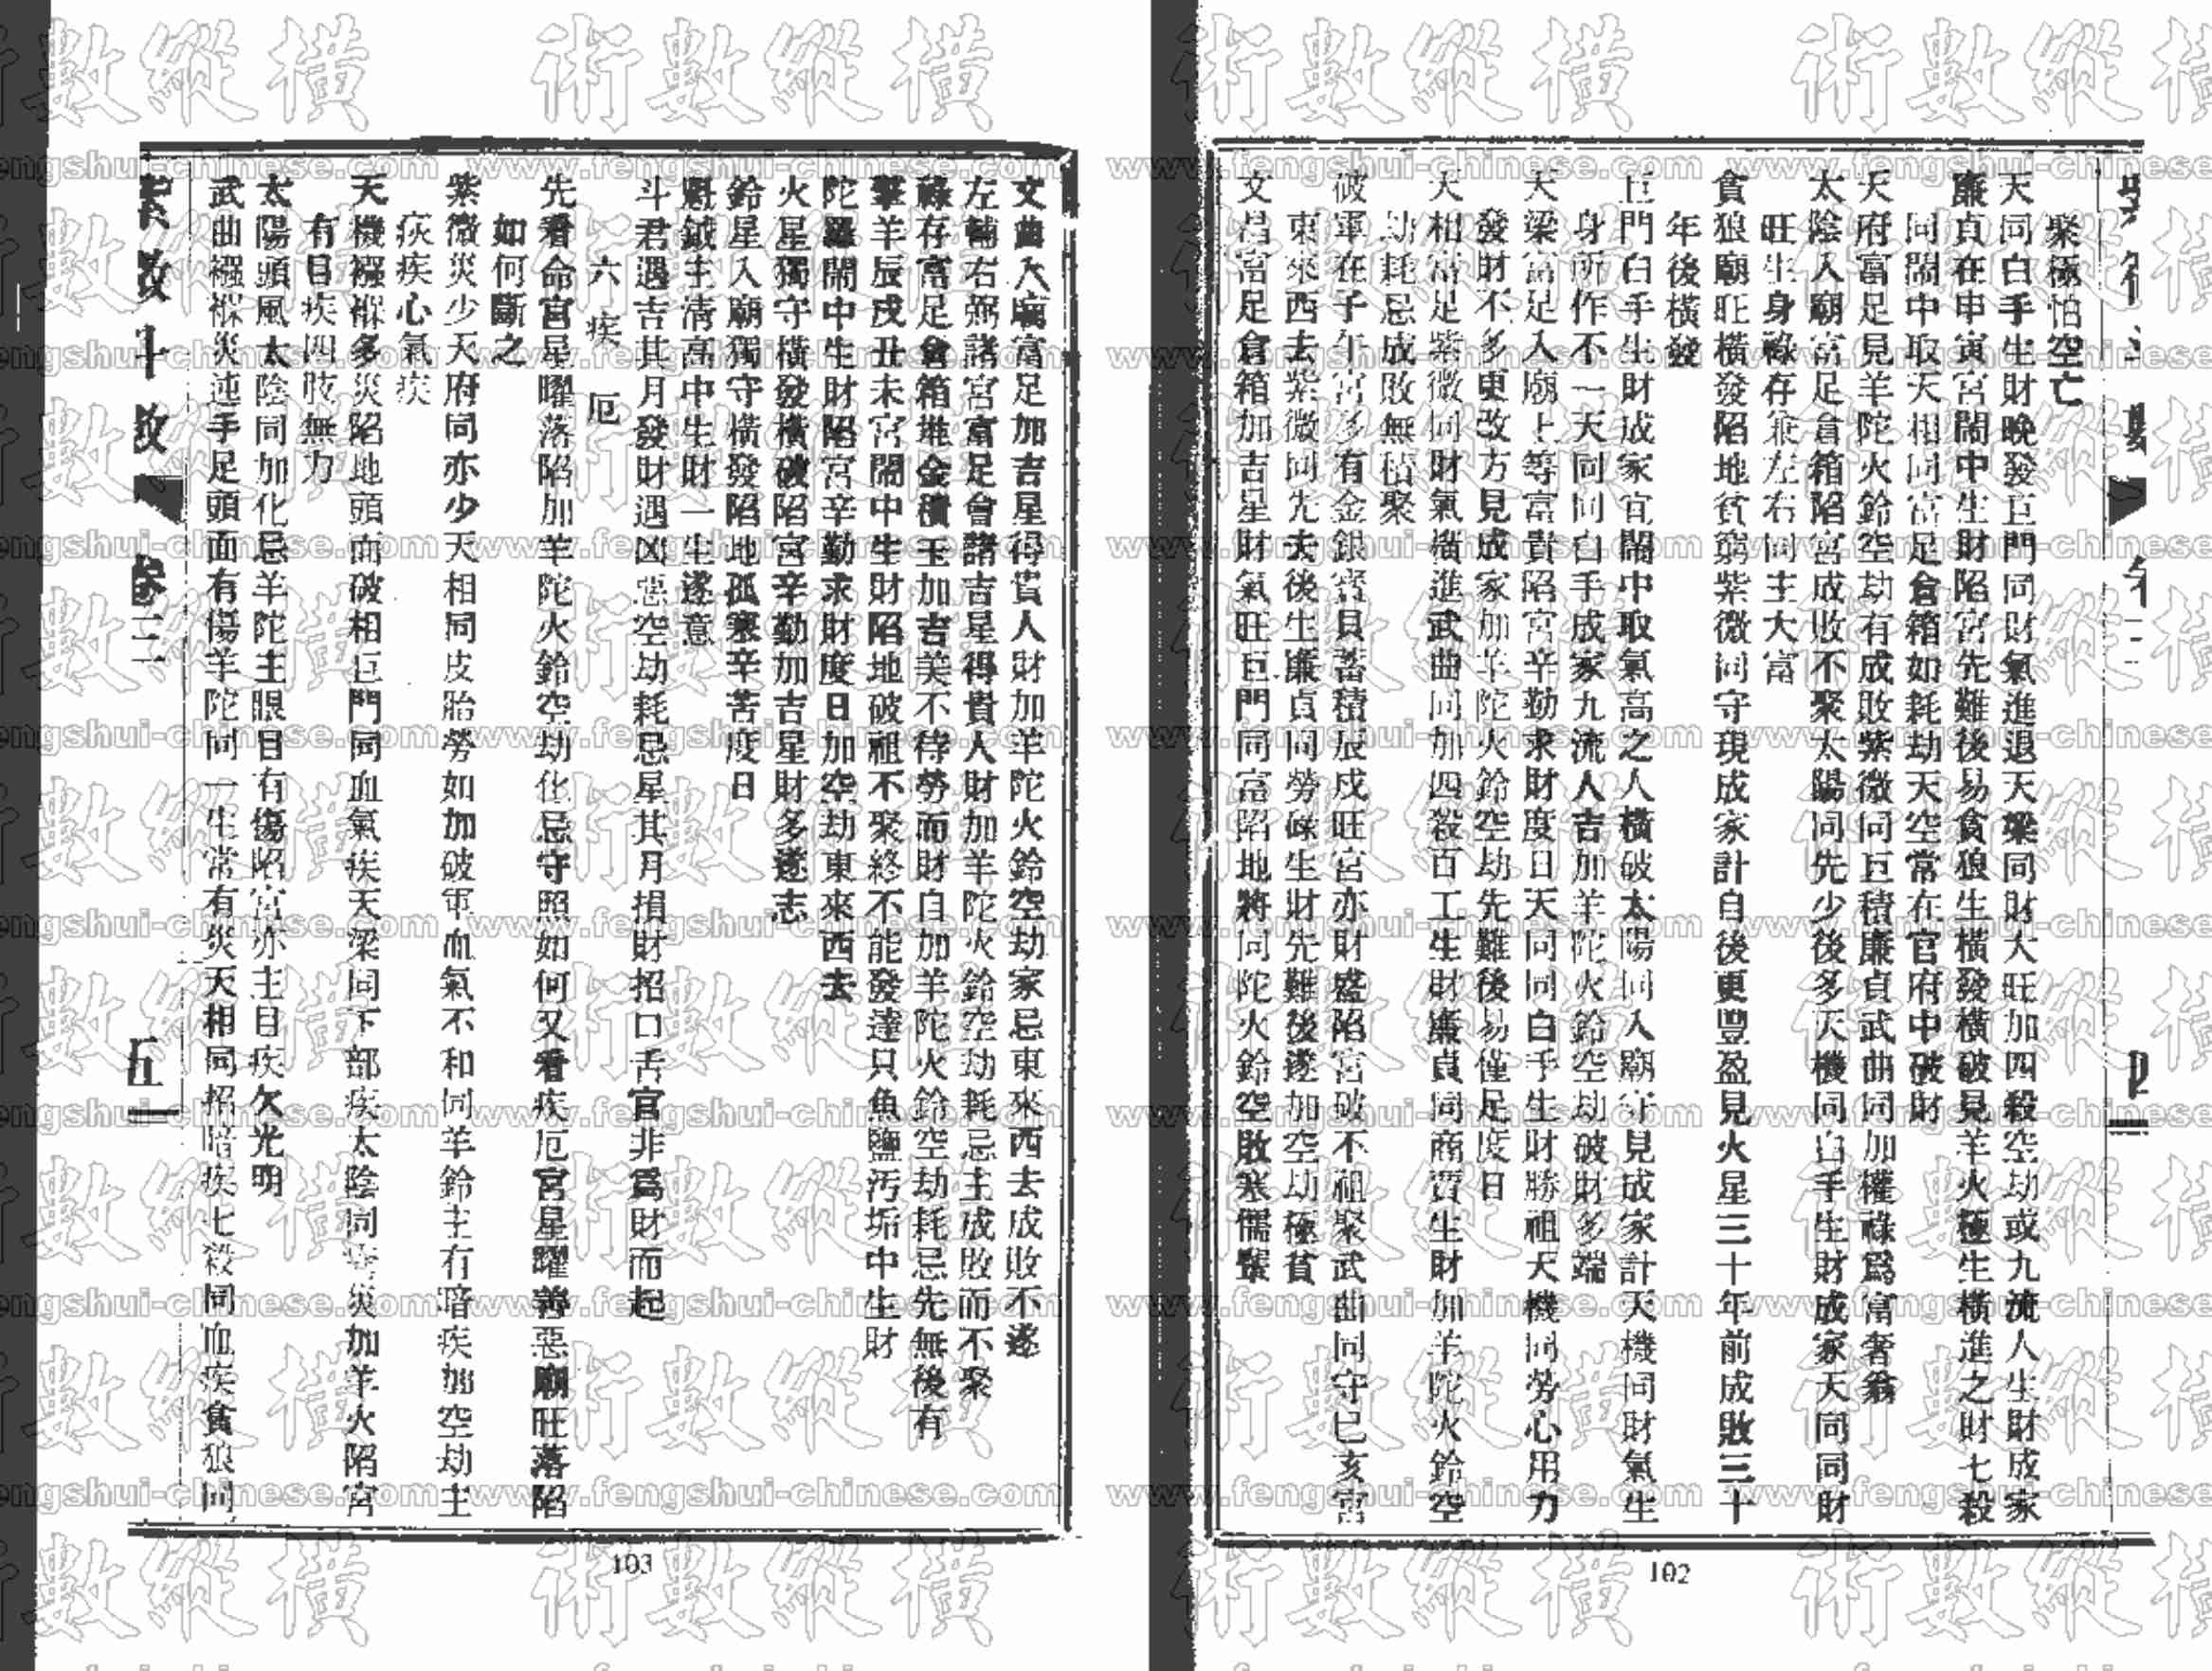 聚極怕空亡
天同白手生財晚發巨門同財氣進退天梁同財大旺加四殺空劫或九流人生財成家
廉貞在申寅宮鬧中生財陷宮先難後易貪狼生橫發橫破見羊火極生橫進之財七殺
同鬧中取天相同富足倉箱如耗劫天空常在官府中破財
天府富足見羊陀火鈴空劫有成敗紫微同巨積廉貞武曲同加權祿爲富奢翁
太陰入廟富足倉箱陷宮成敗不聚太陽同先少後多天機同白手生財成家天同同財
旺生身祿存兼左右同主大富
貪狼廟旺橫發陷地貧窮紫微同守現成家計自後更豐盈見火星三十年前成敗三十
年後橫發
巨門白手生財成家宜鬧中取氣高之人橫破太陽同入廟守見成家計天機同財氣生
身所作不一天同同白手成家九流人吉加羊陀火鈴空劫破財多端
天梁富足入廟上等富貴陷宮辛勤求財度日天同同白手生財勝祖天機同勞心用力
發財不多更改方見成家加羊陀火鈴空劫先難後易僅足度日
天相富足紫微同財氣橫進武曲同加四殺百工生財廉貞同商賈生財加羊陀火鈴空
劫耗忌成敗無積聚
破軍在子午宮多有金銀寶貝蓄積辰戌旺宮亦財盛陷宮破不祖聚武曲同守巳亥宮
東來西去紫微同先去後生廉貞同勞碌生財先難後遂加空劫極貧
文昌富足倉箱加吉星財氣旺巨門同富陷地將同陀火鈴空敗寒儒輩
四
102
文曲入廟富足加吉星得貴人財加羊陀火鈴空劫家忌東來西去成敗不遂
左輔右弼諸宮富足會諸吉星得貴人財加羊陀火鈴空劫耗忌主成敗而不聚
祿存富足倉箱堆金積玉加吉美不待勞而財自加羊陀火鈴空劫耗忌先無後有
擎羊辰戌丑未宮鬧中生財陷地破祖不聚終不能發達只魚鹽污垢中生財
陀羅鬧中生財陷宮辛勤求財度日加空劫東來西去
火星獨守橫發橫破陷宮辛勤加吉星財多遂志
鈴星入廟獨守橫發陷地孤寒辛苦度日
魁鉞主清高中生財一生遂意
斗君遇吉其月發財遇凶惡空劫耗忌星其月損財招口舌官非爲財而起
六疾厄
先看命宮星曜落陷加羊陀火鈴空劫化忌守照如何又看疾厄宮星曜善惡廟旺落陷
如何斷之
紫微災少天府同亦少天相同皮胎勞如加破軍血氣不和同羊鈴主有暗疾加空劫主
疾疾心氣疾
天機襁褓多災陷地頭面破相巨門同血氣疾天梁同下部疾太陰同災加羊火陷宮
有目疾四肢無力
太陽頭風太陰同加化忌羊陀主眼目有傷陷宮亦主目疾欠光明
武曲襁褓災迍手足頭面有傷羊陀同一生常有災天相同招暗疾七殺同血疾貪狼同
紫微斗數 卷三
五
103